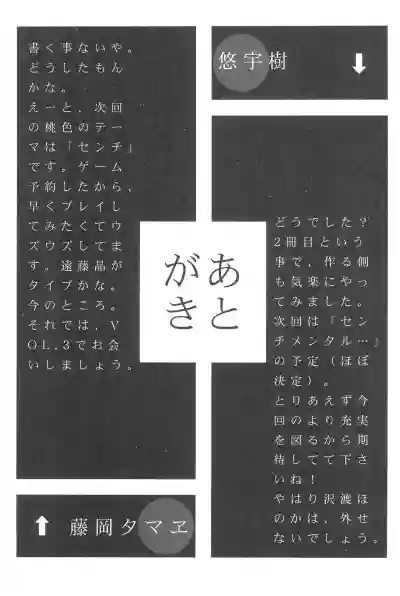 悠宇樹
⬇
どうでした?
2冊目という
事で、作る側
も気楽にやっ
てみました。
次回は『セン
チメンタル…』
の予定(ほぼ
決定)。
とりあえず今
回のより充実
を図るから期
待してて下さ
いね!
やはり沢渡ほ
のかは、外せ
ないでしょう。
あと
がき
書く事ないや。
どうしたもん
かな。
えーと、次回
の桃色のテー
マは「センチ」
です。ゲーム
予約したから、
早くプレイし
てみたくてウ
ズウズしてま
す。遠藤晶が
タイプかな。
今のところ。
それでは、V
OL.3でお会
いしましょう。
⬆
藤岡タマヱ